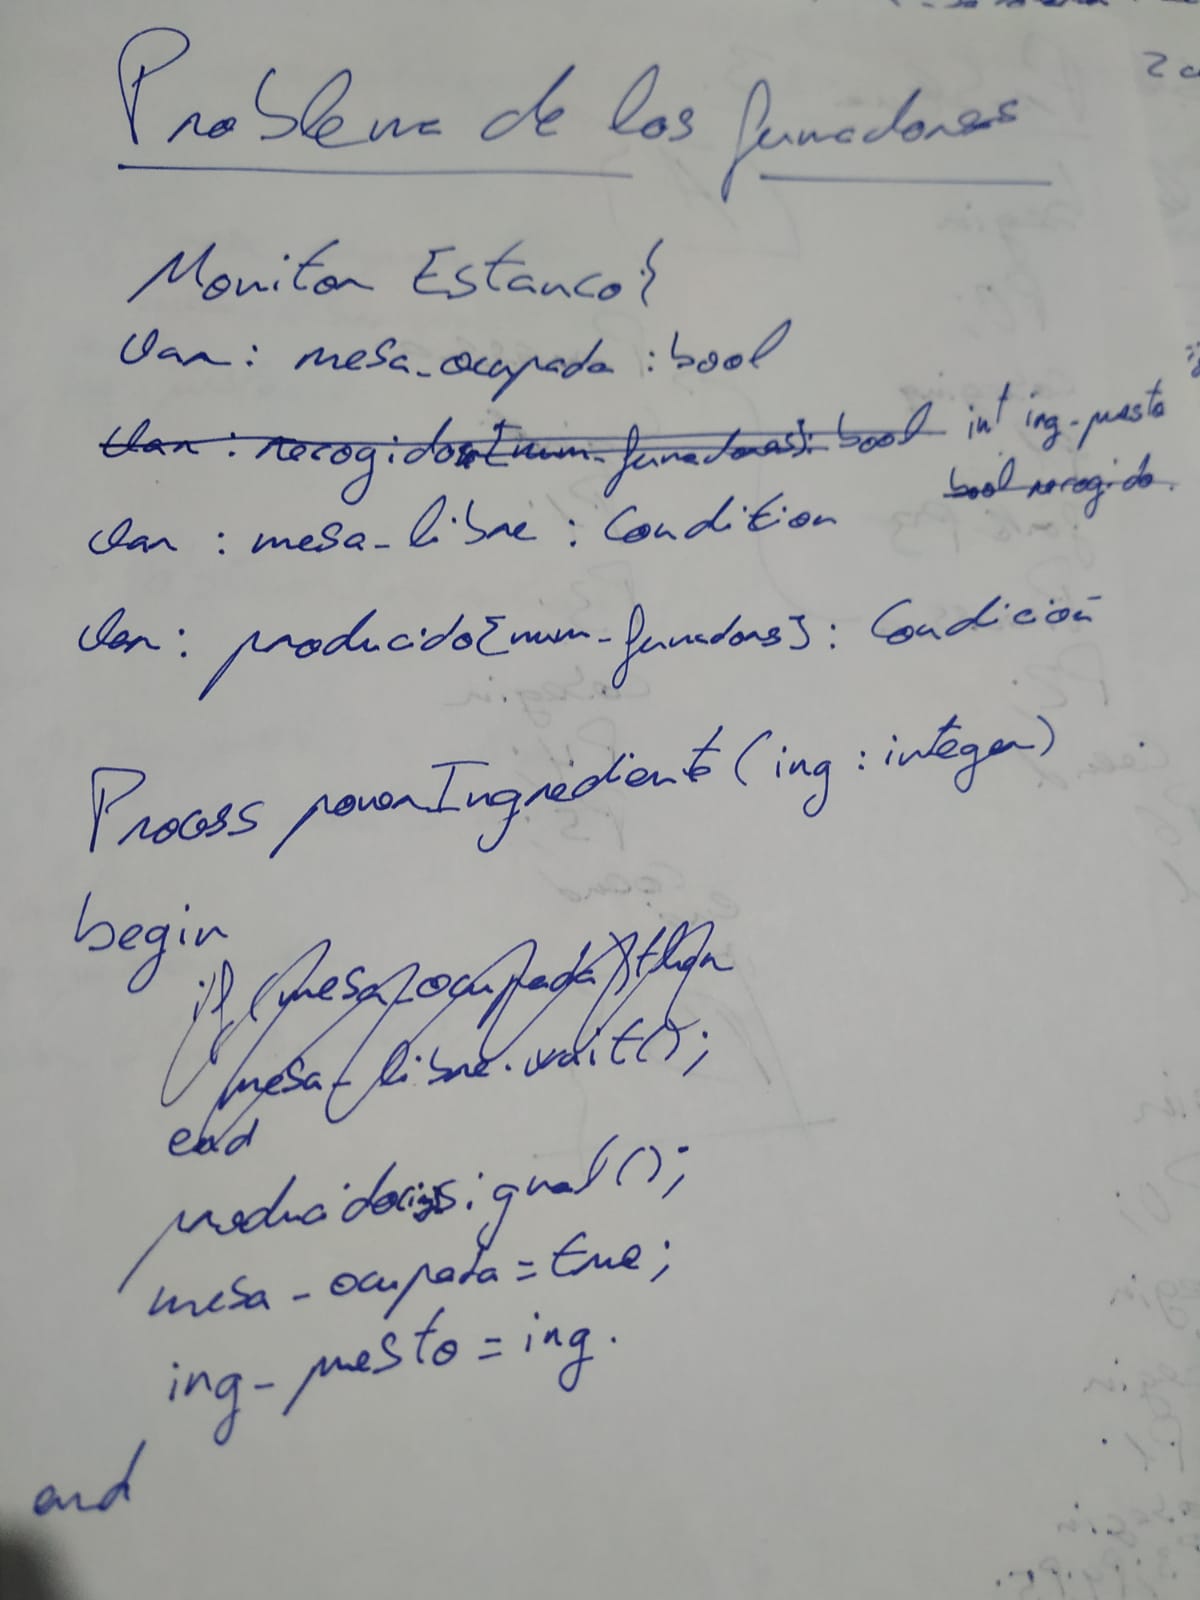 Problema de los fumadores
Monitor Estanco {
Var: mesa_ocupada : bool
Var : recogido [num_fumadores]: bool int ing_puesto
bool recogido.
Var : mesa_libre : Condition
Var: producido[num_fumadors]: Condición
Process ponerIngrediente (ing : integer)
begin
if (mesa_ocupada) then
mesa_libre.wait();
end
producido[ing].signal();
mesa_ocupada = true;
ing_puesto = ing.
end